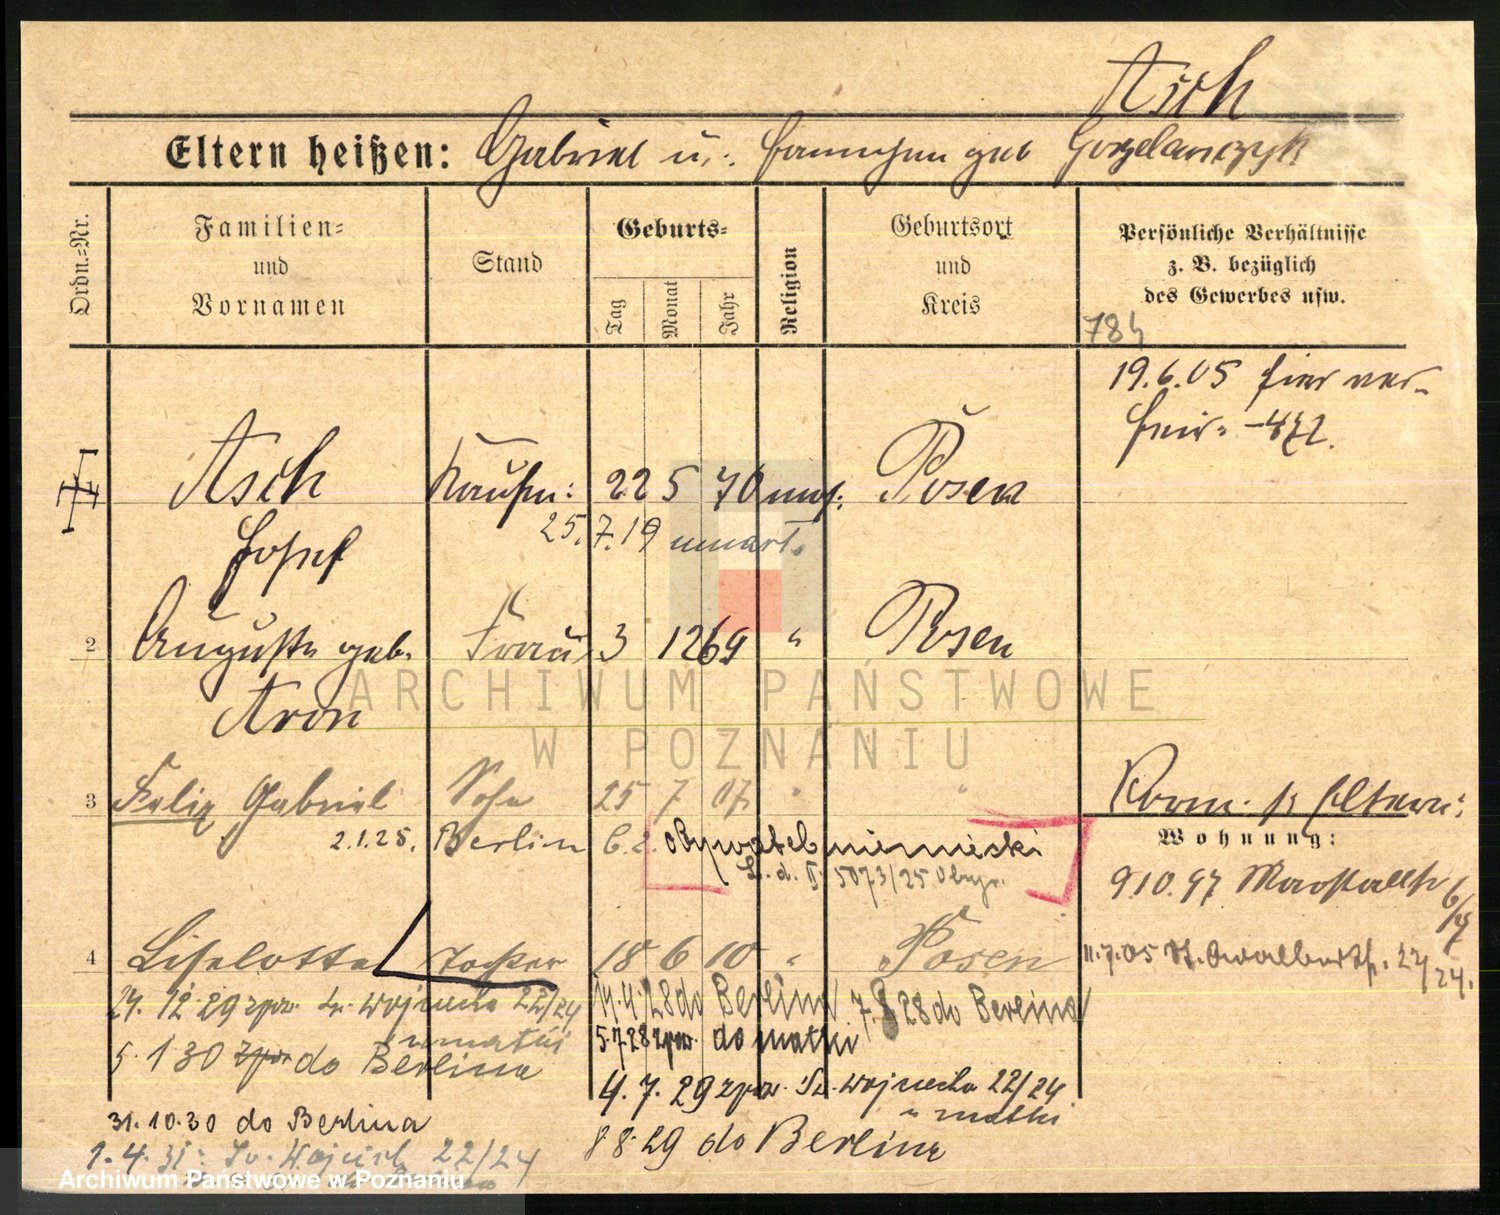 Asch
Eltern heißen: Gabriel u: Fannchen geb Gorzelanczyk
Ordn.-Nr.
Familien-
und
Vornamen
Stand
Geburts-
Tag
Monat
Jahr
Religion
Geburtsort
und
Kreis
Persönliche Verhältnisse
z. B. bezüglich
des Gewerbes usw.
19.6.05 hier ver-
heir:
Asch Kaufm: 22 5 70 mos: Posen
25.7.19 umarł.
Josef
2 Auguste geb. Frau 3 12 69 " Posen
Aron
3 Felix Gabriel Sohn 25 7 07. " "
2.1.25. Berlin 6.2. obywatel niemiecki
L. d. 5073/25
Korn. b Eltern:
Wohnung:
9.10.97 Marstallstr 6/7
11.7.05 St. Adalbertstr. 22/24.
4 Liselotte Tochter 18 6 10 " Posen
24.12.29 zpow. Św. Wojciecha 22/24
u matki
5.1.30 do Berlina
31.10.30 do Berlina
1.4.31: Św. Wojciech 22/24
14.4.28 do Berlina
7.8 28 do Berlina
5.7.28 zpow. do matki
4.7.29 zpow. Św. Wojciecha 22/24
u matki
8 8.29 do Berlina
ARCHIWUM PAŃSTWOWE
W POZNANIU
Archiwum Państwowe w Poznaniu